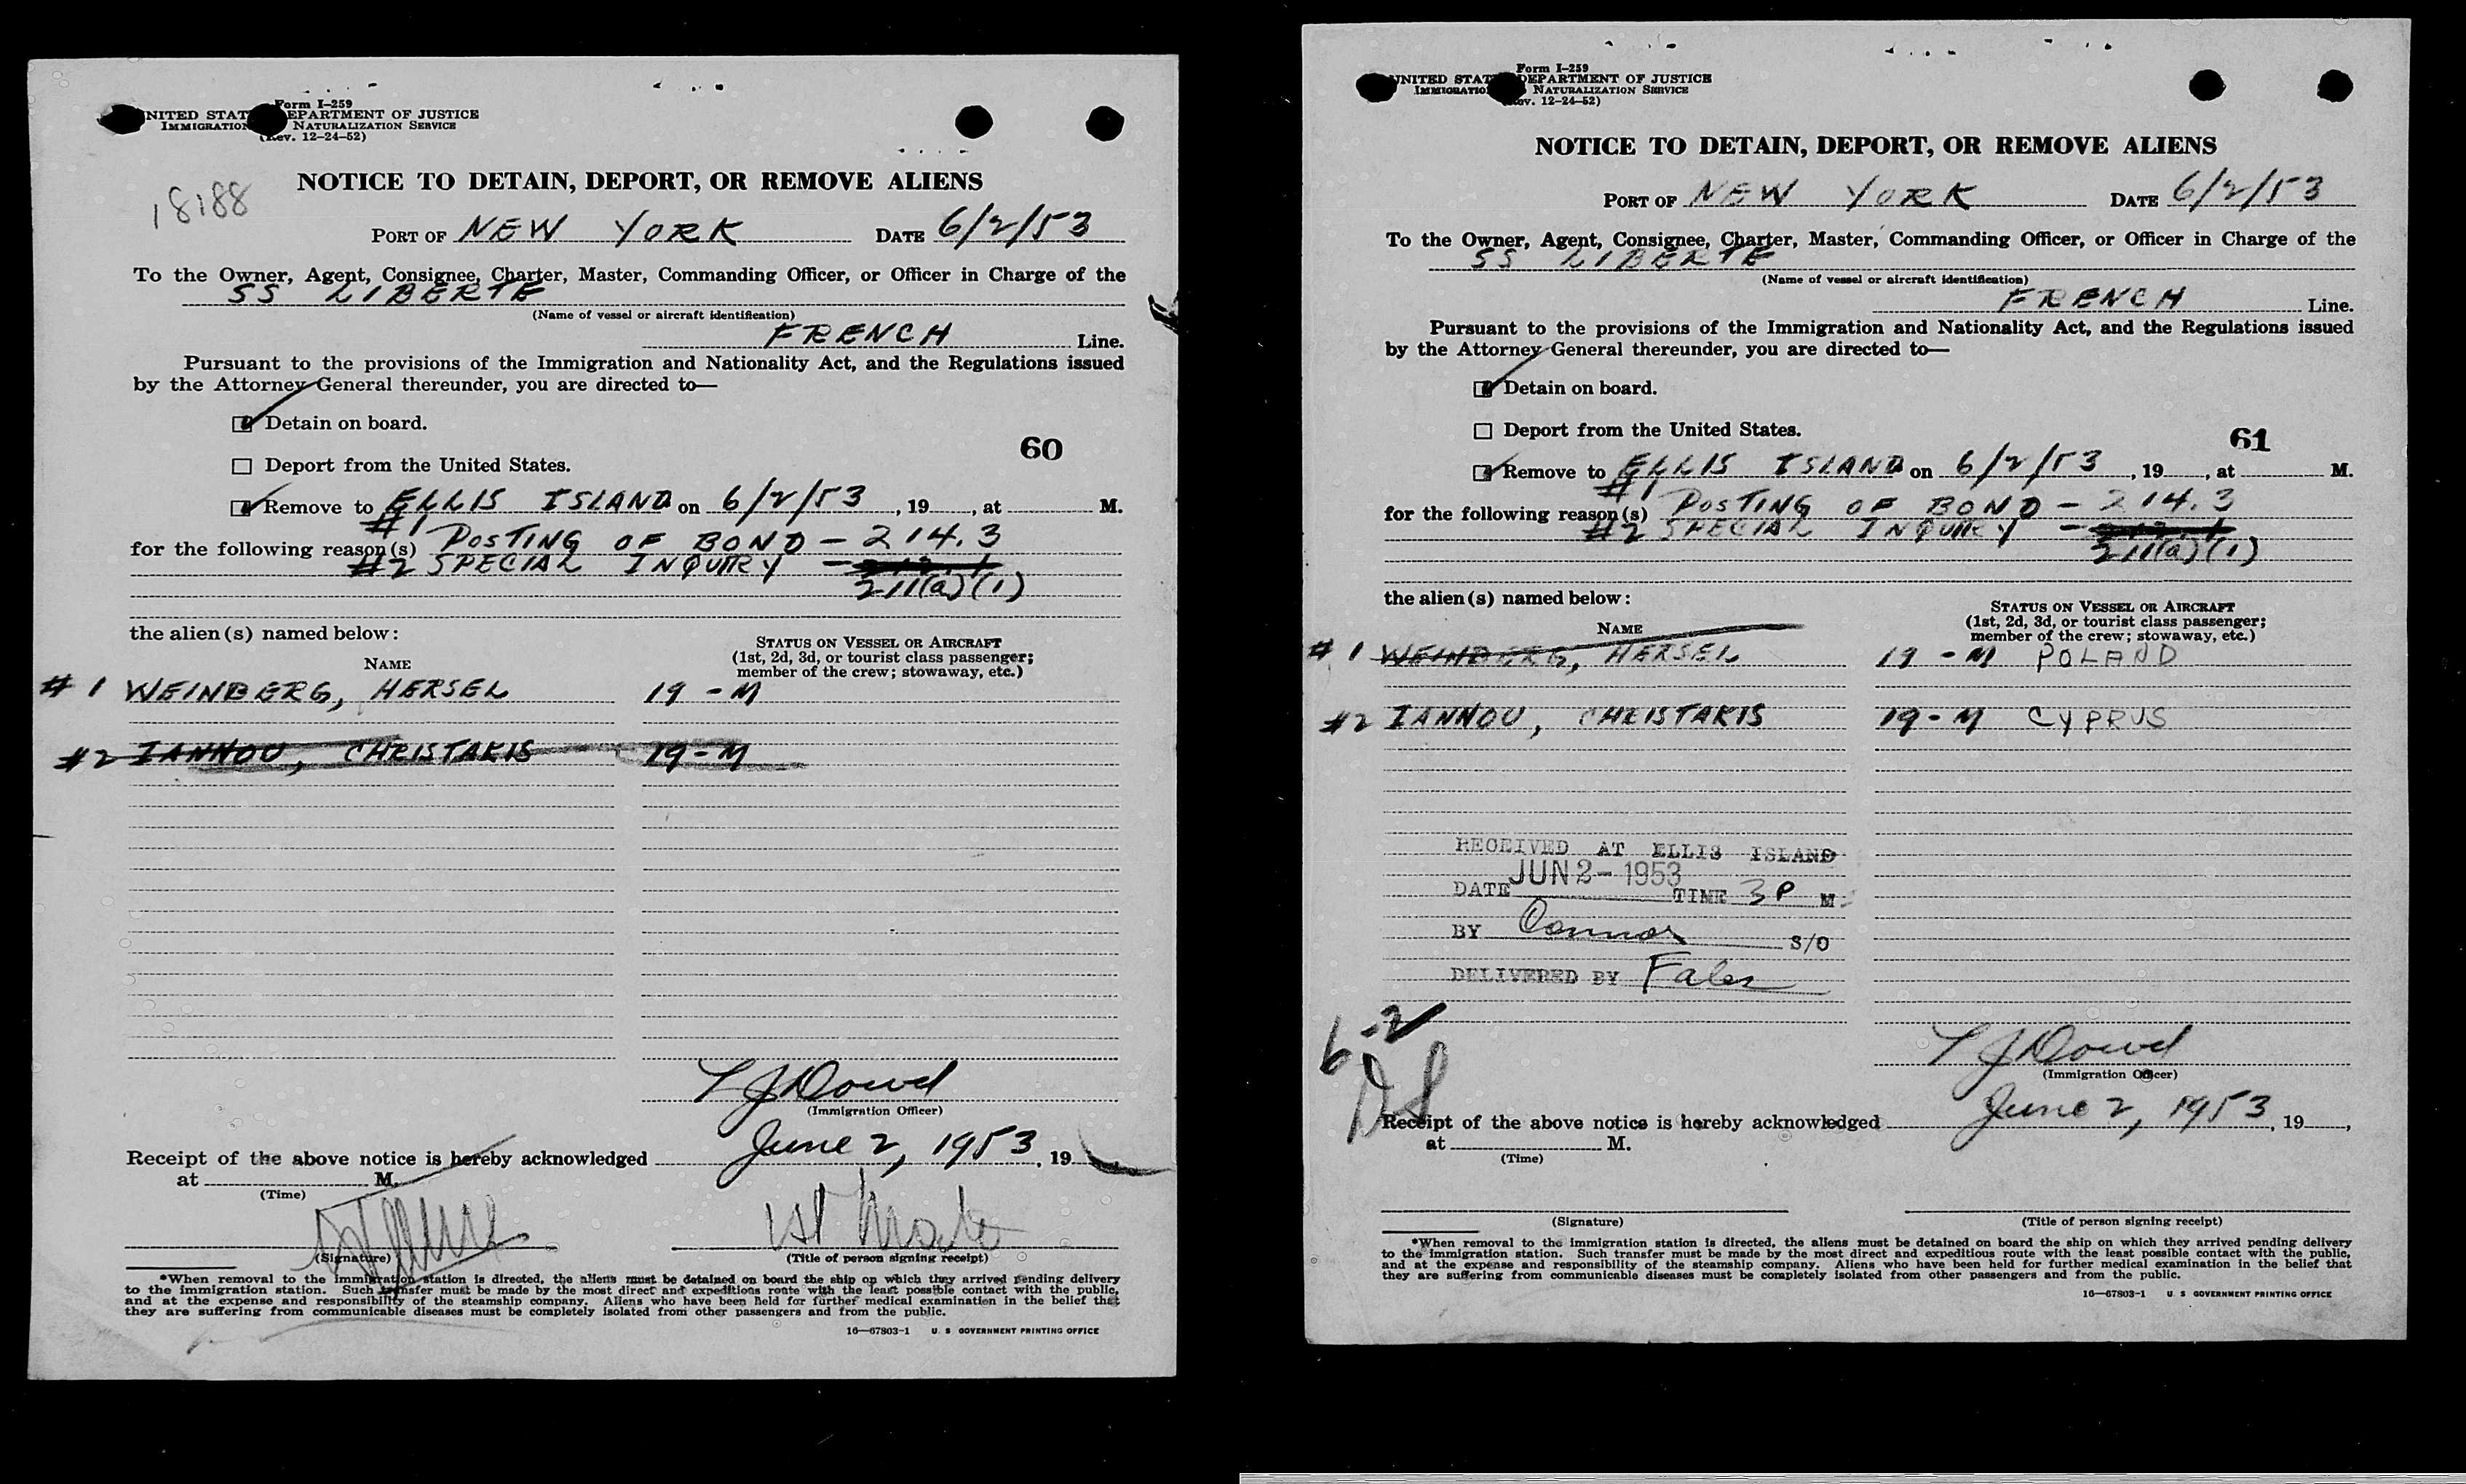 Form I-259
UNITED STAT EPARTMENT OF JUSTICE
IMMIGRATION NATURALIZATION SERVICE
(Rev. 12-24-52)
18188
NOTICE TO DETAIN, DEPORT, OR REMOVE ALIENS
PORT OF NEW YORK DATE 6/2/53
To the Owner, Agent, Consignee, Charter, Master, Commanding Officer, or Officer in Charge of the
SS LIBERTE
(Name of vessel or aircraft identification)
FRENCH Line.
Pursuant to the provisions of the Immigration and Nationality Act, and the Regulations issued
by the Attorney General thereunder, you are directed to—
Detain on board.
60
Deport from the United States.
Remove to ELLIS ISLAND on 6/2/53, 19, at M.
for the following reason(s) #1 POSTING OF BOND - 214.3
#2 SPECIAL INQUIRY -
211(a)(1)
the alien(s) named below:
STATUS ON VESSEL OR AIRCRAFT
(1st, 2d, 3d, or tourist class passenger;
member of the crew; stowaway, etc.)
NAME
#1 WEINBERG, HERSEL 19 - M
#2 IANNOU, CHRISTAKIS 19 - M
T J Dowd
(Immigration Officer)
Receipt of the above notice is hereby acknowledged June 2, 1953, 19
at M.
(Time)
1st Mate
(Signature) (Title of person signing receipt)
*When removal to the immigration station is directed, the aliens must be detained on board the ship on which they arrived pending delivery
to the immigration station. Such transfer must be made by the most direct and expeditious route with the least possible contact with the public,
and at the expense and responsibility of the steamship company. Aliens who have been held for further medical examination in the belief that
they are suffering from communicable diseases must be completely isolated from other passengers and from the public.
16—67803-1 U. S GOVERNMENT PRINTING OFFICE
Form I-259
UNITED STAT DEPARTMENT OF JUSTICE
IMMIGRATIO NATURALIZATION SERVICE
(Rev. 12-24-52)
NOTICE TO DETAIN, DEPORT, OR REMOVE ALIENS
PORT OF NEW YORK DATE 6/2/53
To the Owner, Agent, Consignee, Charter, Master, Commanding Officer, or Officer in Charge of the
SS LIBERTE
(Name of vessel or aircraft identification)
FRENCH Line.
Pursuant to the provisions of the Immigration and Nationality Act, and the Regulations issued
by the Attorney General thereunder, you are directed to—
Detain on board.
Deport from the United States.
61
Remove to ELLIS ISLAND on 6/2/53, 19, at M.
for the following reason(s) #1 POSTING OF BOND - 214.3
#2 SPECIAL INQUIRY -
211(a)(1)
the alien(s) named below:
STATUS ON VESSEL OR AIRCRAFT
(1st, 2d, 3d, or tourist class passenger;
member of the crew; stowaway, etc.)
NAME
#1 WEINBERG, HERSEL 19 - M POLAND
#2 IANNOU, CHRISTAKIS 19 - M CYPRUS
RECEIVED AT ELLIS ISLAND
DATE JUN 2 - 1953 TIME 3 P M
BY Connor S/O
DELIVERED BY Fales
6-2
T J Dowd
(Immigration Officer)
Receipt of the above notice is hereby acknowledged June 2, 1953, 19,
at M.
(Time)
(Signature) (Title of person signing receipt)
*When removal to the immigration station is directed, the aliens must be detained on board the ship on which they arrived pending delivery
to the immigration station. Such transfer must be made by the most direct and expeditious route with the least possible contact with the public,
and at the expense and responsibility of the steamship company. Aliens who have been held for further medical examination in the belief that
they are suffering from communicable diseases must be completely isolated from other passengers and from the public.
16—67803-1 U. S GOVERNMENT PRINTING OFFICE